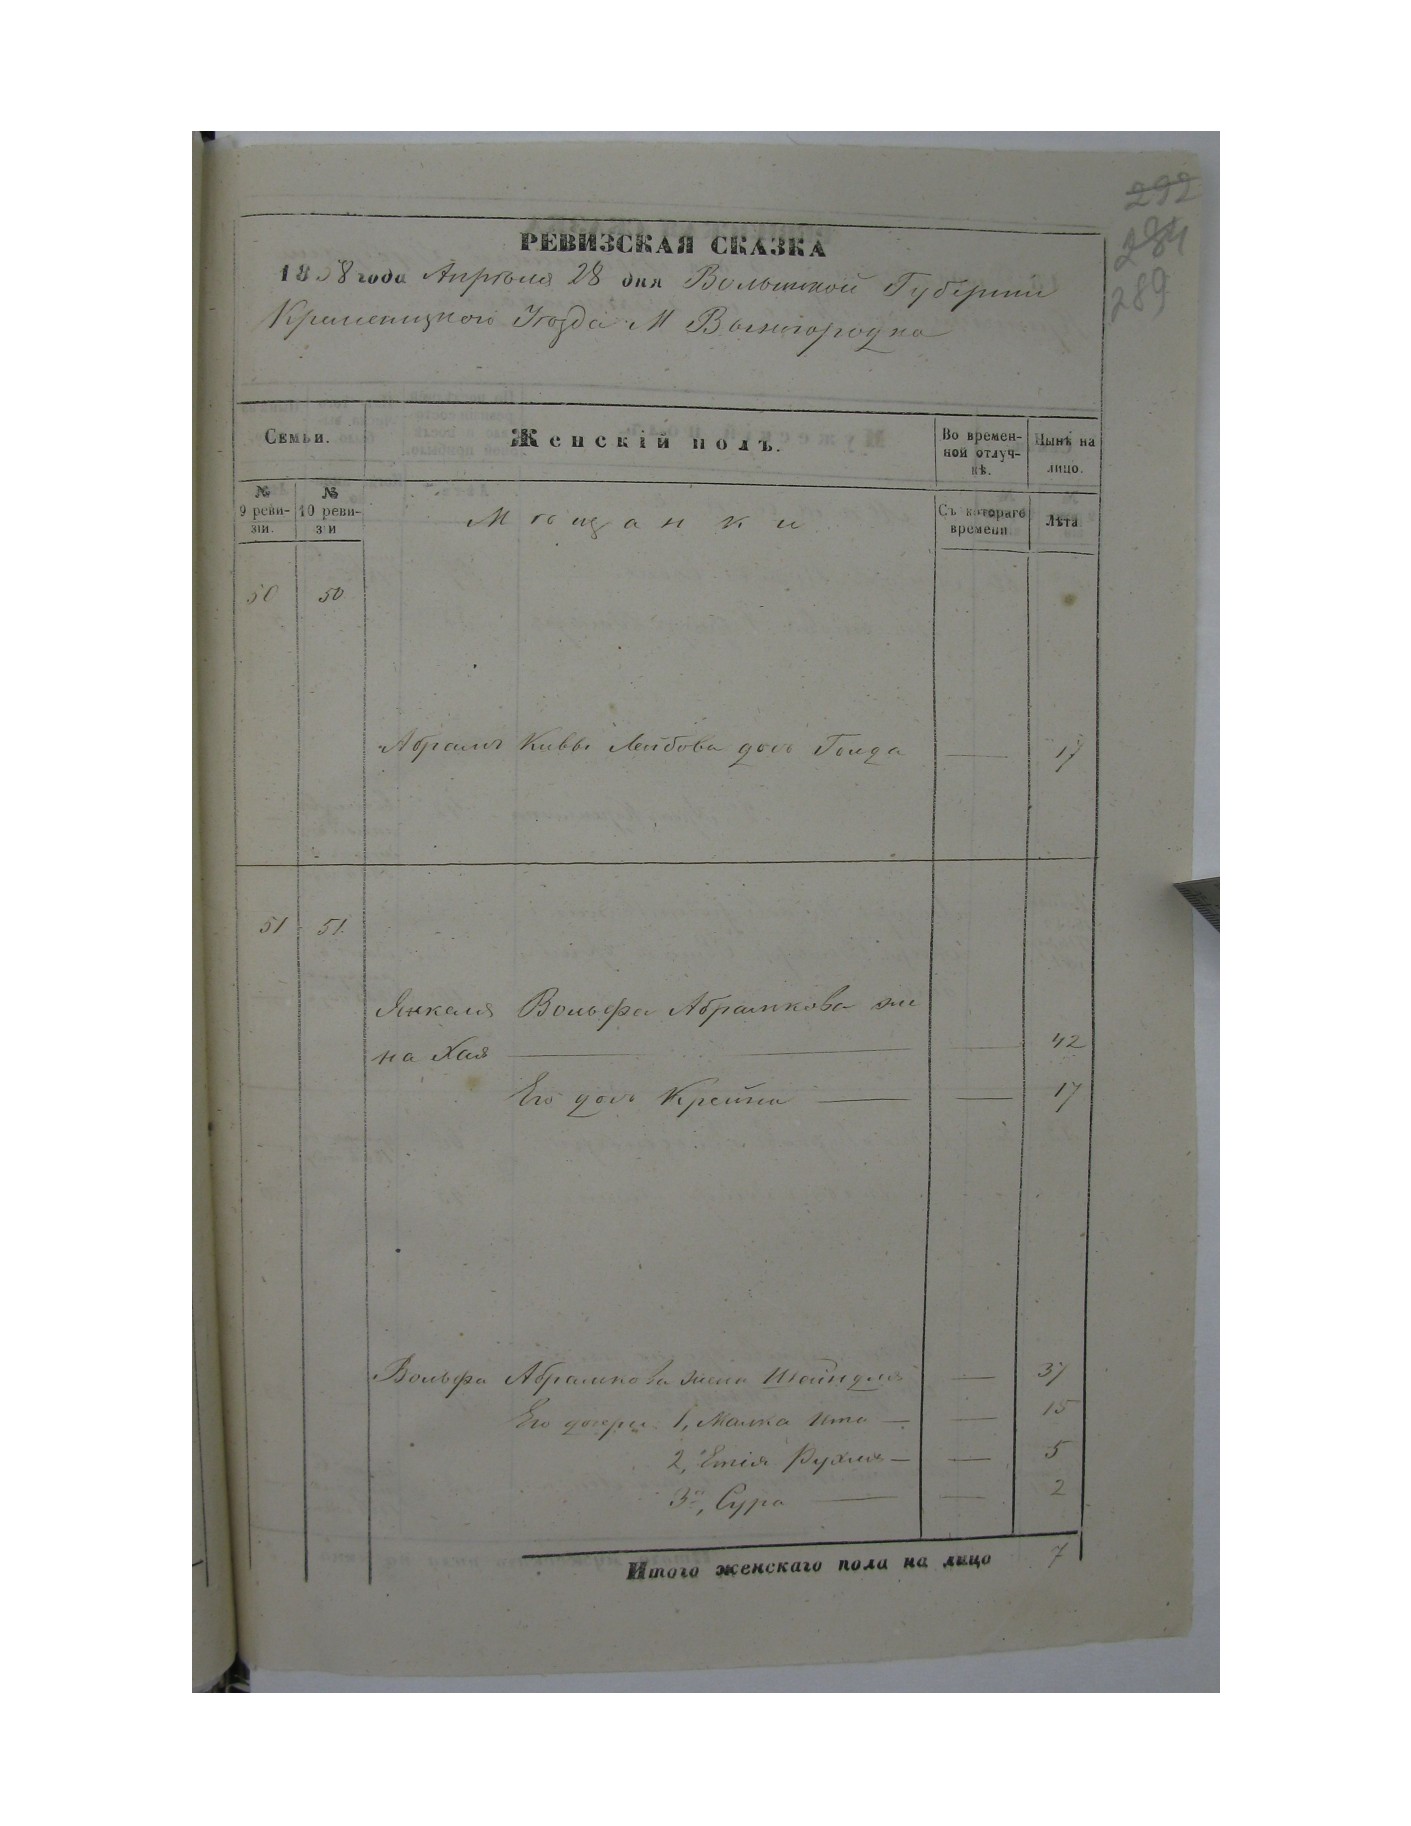 292
284
289
РЕВИЗСКАЯ СКАЗКА
1858 года Апрѣля 28 дня Волынской Губерніи
Кременецкого Уѣзда М Вышогродка
Семьи.
Женскій полъ.
Во времен-
ной отлуч-
кѣ.
Нынѣ на
лицо.
№
9 реви-
зіи.
№
10 реви-
зіи
Съ котораго
времени
Лѣта
Мѣщанки
50 50
Абрамъ Кивы Лейбова дочь Голда — 17
51 51
Янкеля Вольфа Абрамкова же
на Хая — 42
Его дочь Крейна — — 17
Вольфа Абрамкова жена Шайндля — 37
Его дочери 1, Малка Ита — — 15
2, Етія Рухля — — 5
3, Сура — — 2
Итого женскаго пола на лицо 7